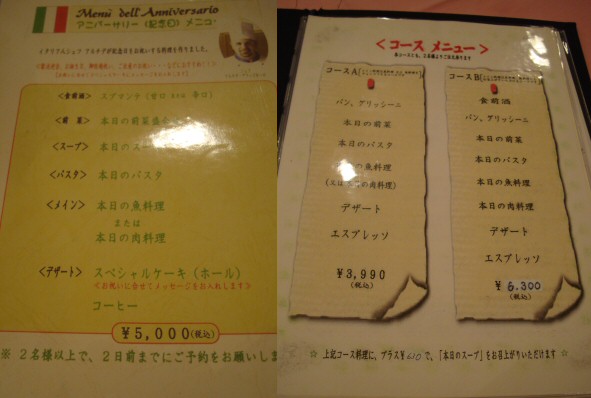 Menù dell'Anniversario
アニバーサリー(記念日)メニュー
<食前酒> スプマンテ(甘口 辛口)
<前 菜> 本日の前菜盛
<スープ> 本日のス
<パスタ> 本日のパスタ
<メイン> 本日の魚料理
または
本日の肉料理
<デザート> スペシャルケーキ(ホール)
<お祝いに合せてメッセージをお入れします>
コーヒー
¥5,000(税込)
※ 2名様以上で、2日前までにご予約をお願いしま
<コース メニュー>
各コースとも、2名様よりご注文承ります
コースA
パン、グリッシーニ
本日の前菜
本日のパスタ
本日の魚料理
(又は本日の肉料理)
デザート
エスプレッソ
¥3,990
(税込)
コースB
食前酒
パン、グリッシーニ
本日の前菜
本日のパスタ
本日の魚料理
本日の肉料理
デザート
エスプレッソ
¥6.300
(税込)
☆ 上記コース料理に、プラス¥610で、「本日のスープ」をお召上がりいただけます ☆